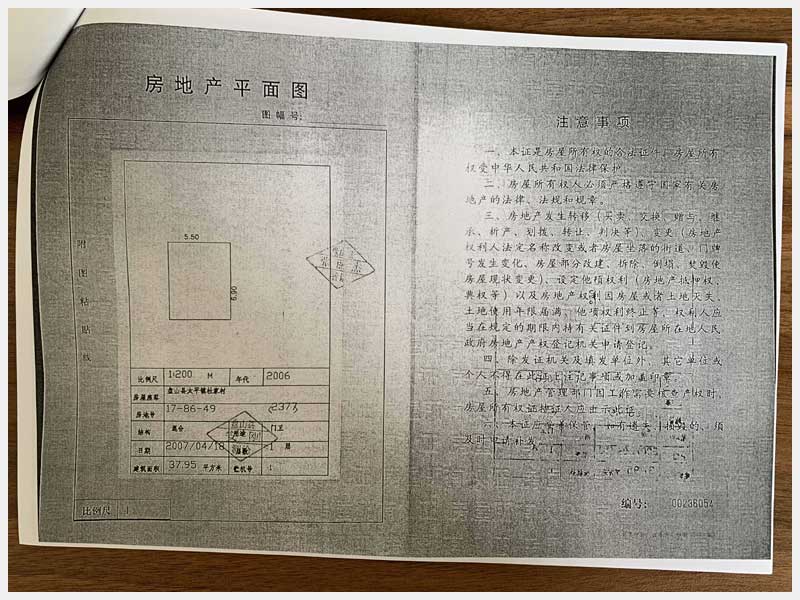 房地产平面图
图幅号:
附图粘贴线
5.50
6.90
比例尺 1:200 M 年代 2006
房屋座落 盘山县太平镇杜家村
房地号 17-86-49 2377
结构 混合 用途 门卫
日期 2007/04/18 总数 1 层
建筑面积 37.95 平方米 1
比例尺 1:
注意事项
一、本证是房屋所有权的合法证件。房屋所有
权受中华人民共和国法律保护。
二、房屋所有权人必须严格遵守国家有关房
地产的法律、法规和规章。
三、房地产发生转移（买卖、交换、赠与、继
承、析产、划拨、转让、判决等）、变更（房地产
权利人法定名称改变或者房屋坐落的街道、门牌
号发生变化、房屋部分改建、拆除、倒塌、焚毁使
房屋现状变更）、设定他项权利（房地产抵押权、
典权等）以及房地产权利因房屋或者土地灭失、
土地使用年限届满、他项权利终止等，权利人应
当在规定的期限内持有关证件到房屋所在地人民
政府房地产产权登记机关申请登记。
四、除发证机关及填发单位外，其它单位或
个人不得在此证上注记事项或加盖印章。
五、房地产管理部门因工作需要核查产权时，
房屋所有权证持证人应出示此证。
六、本证应妥善保管，如有遗失、损毁的，须
及时申请补发。
编号: 00236054